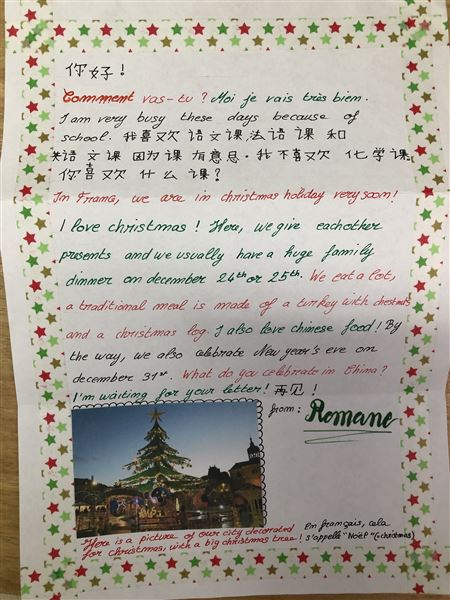 你好！
Comment vas-tu ? Moi je vais très bien.
I am very busy these days because of
school. 我喜欢 语文课,法语课 和
英语文课 因为课 有意思. 我不喜欢 化学课.
你喜欢 什么 课？
In France, we are in christmas holiday very soon!
I love christmas ! Here, we give eachother
presents and we usually have a huge family
dinner on december 24th or 25th. We eat a lot,
a traditional meal is made of a turkey with chestnuts
and a christmas log. I also love chinese food! By
the way, we also celebrate New year's eve on
december 31st. What do you celebrate in China?
I'm waiting for your letter! 再见！
from: Romane
Here is a picture of our city decorated
for christmas, with a big christmas tree !
En français, cela
s'appelle "Noël" (=christmas)